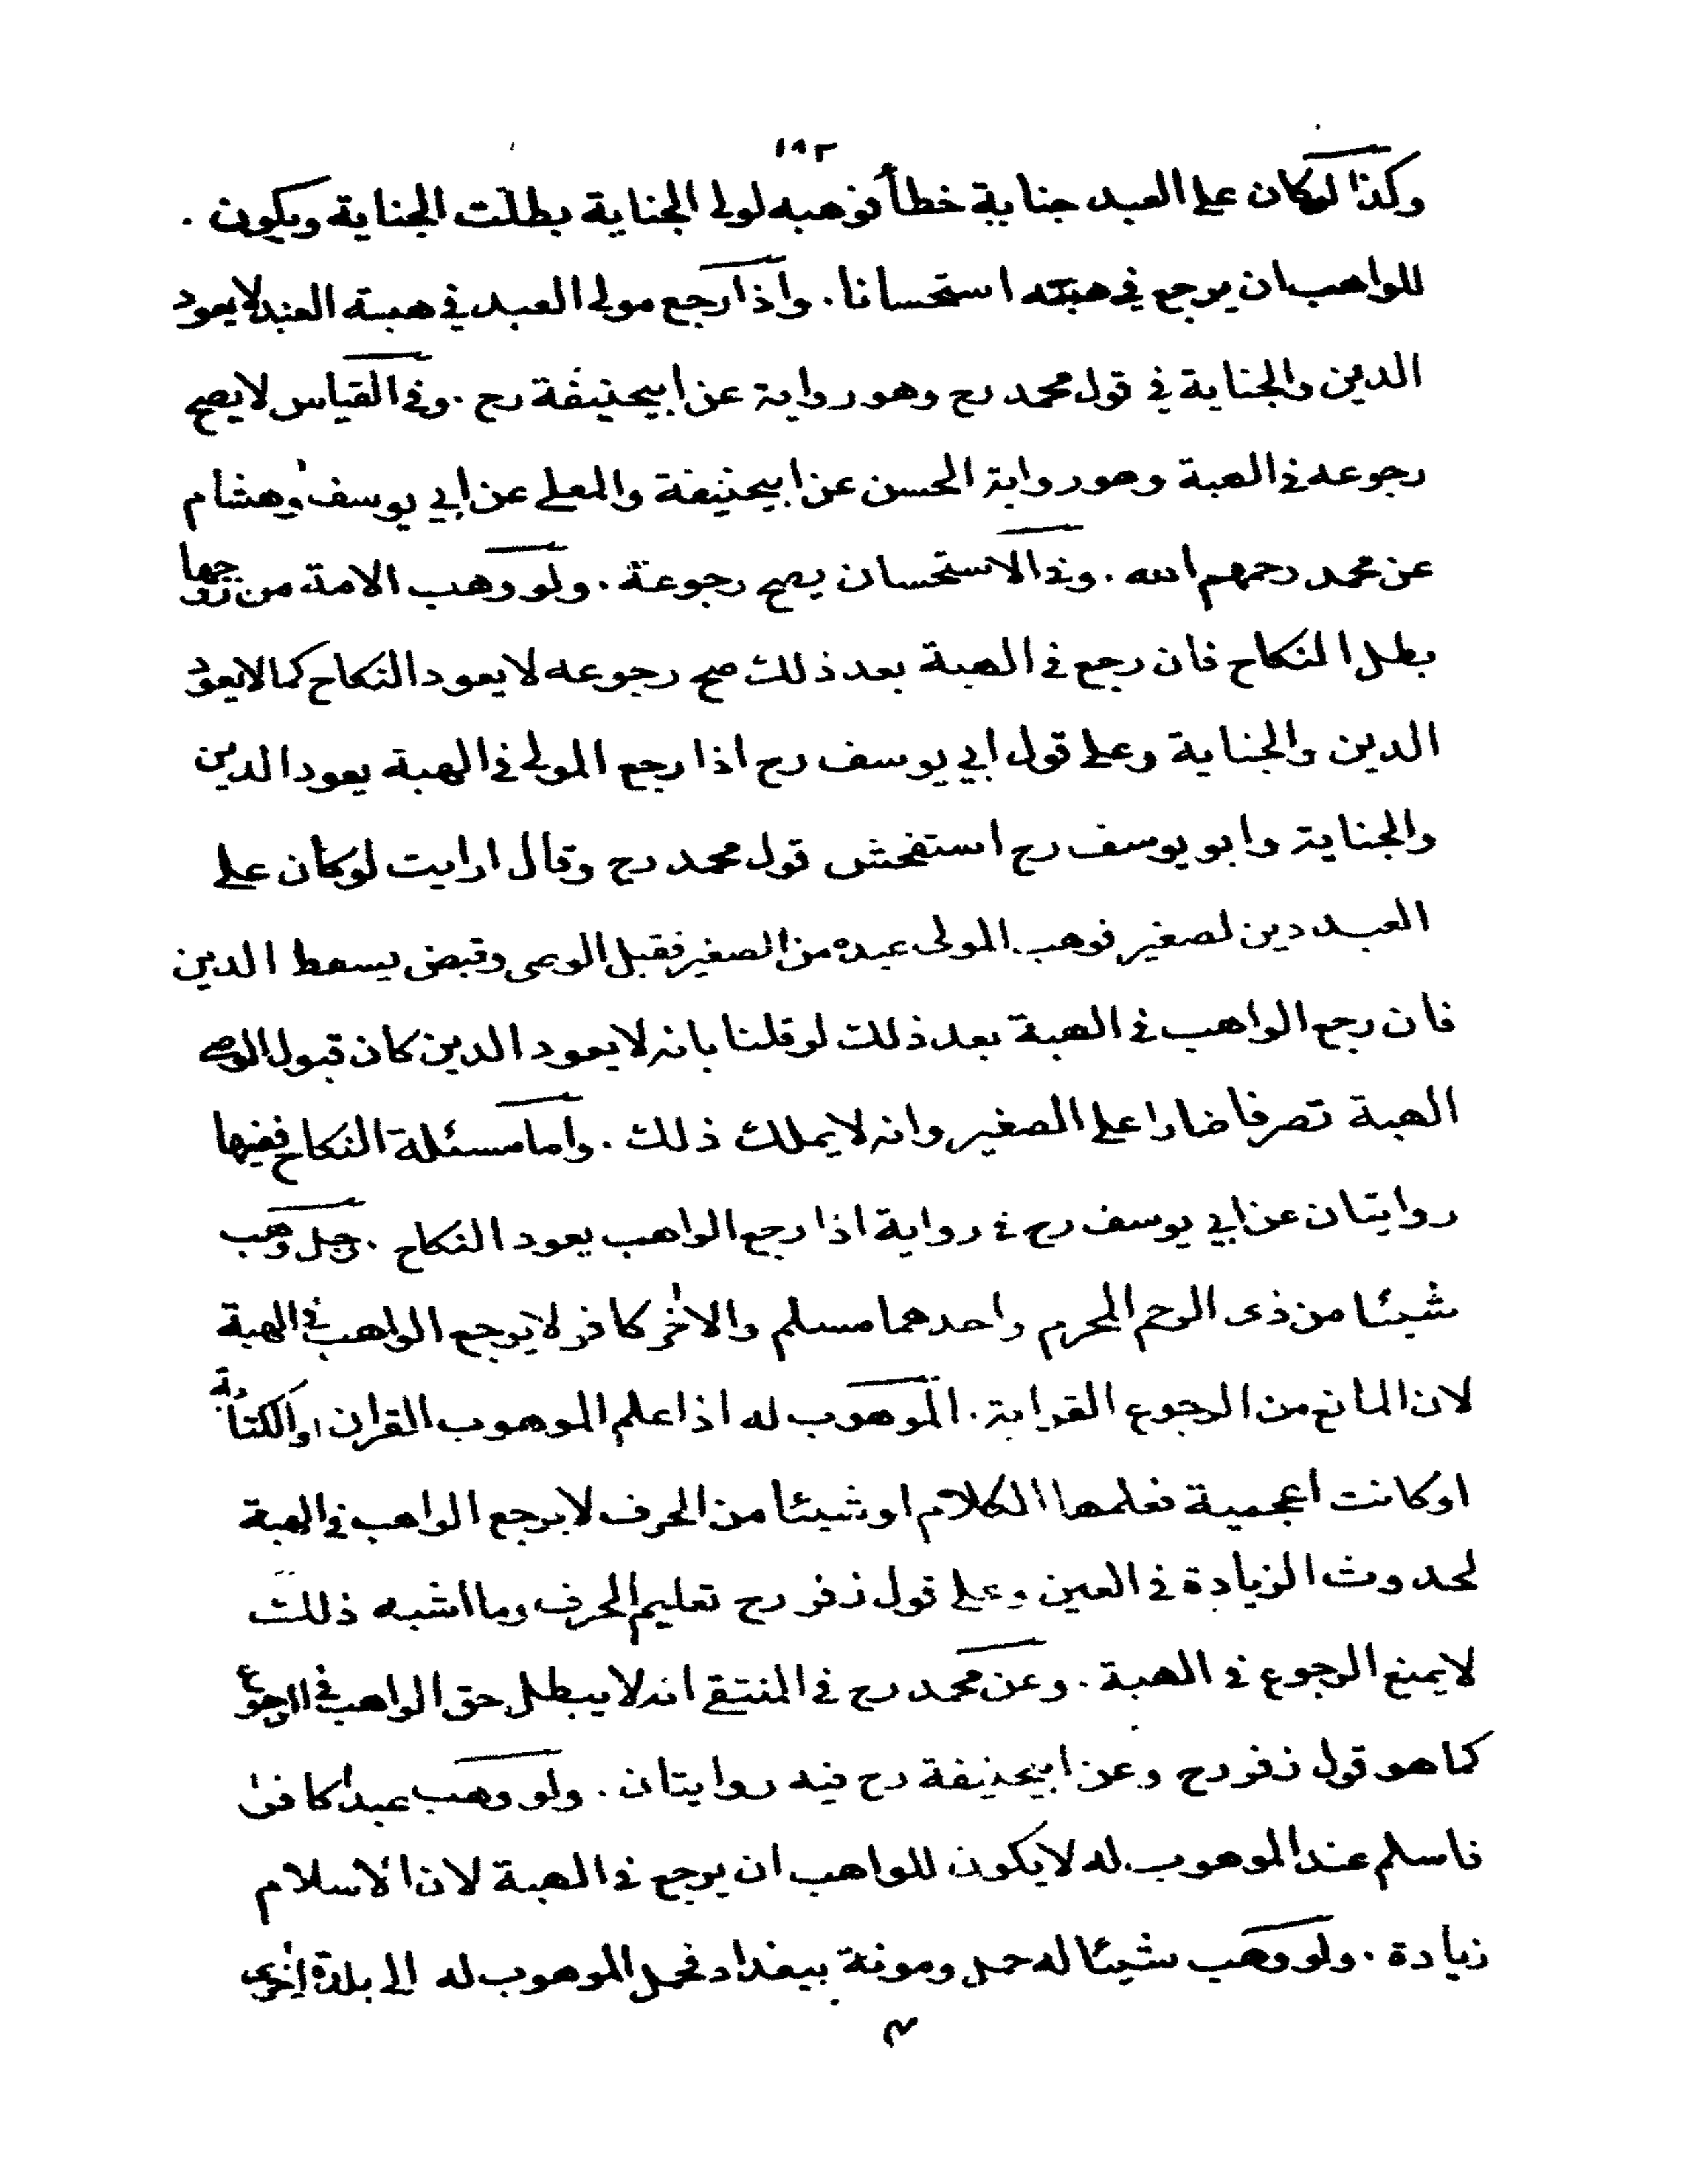 ١٩٢
وكذا لوكان على العبد جناية خطأ فوهبه لولى الجناية بطلت الجناية ويكون .
للواهب ان يرجع في هبته استحسانا . واذا رجع مولى العبد في هبة العبد لا يعود
الدين والجناية في قول محمد رح وهو رواية عن ابيحنيفة رح . وفي القياس لا يصح
رجوعه في الهبة وهو رواية الحسن عن ابيحنيفة والمعلى عن ابي يوسف وهشام
عن محمد رحمهم الله . وفي الاستحسان يصح رجوعة . ولو وهب الامة من زوجها
بطل النكاح فان رجع في الهبة بعد ذلك صح رجوعه لا يعود النكاح كما لا يعود
الدين والجناية وعلى قول ابي يوسف رح اذا رجع المولى في الهبة يعود الدين
والجناية وابو يوسف رح استفحش قول محمد رح وقال ارايت لوكان على
العبد دين لصغير فوهب المولى عبده من الصغير فقبل الوصى وقبض يسقط الدين
فان رجع الواهب في الهبة بعد ذلك لو قلنا بانه لا يعود الدين كان قبول الوصى
الهبة تصرفا ضارا على الصغير وانه لا يملك ذلك . واما مسئلة النكاح ففيها
روايتان عن ابي يوسف رح في رواية اذا رجع الواهب يعود النكاح . رجل وهب
شيئا من ذى الرحم المحرم واحدهما مسلم والاخر كافر لا يرجع الواهب في الهبة
لان المانع من الرجوع القرابة . الموهوب له اذا علم الموهوب القران او الكتابة
او كانت اعجمية فعلمها الكلام او شيئا من الحرف لا يرجع الواهب في الهبة
لحدوث الزيادة في العين وعلى قول زفر رح تعليم الحرف وما اشبه ذلك
لا يمنع الرجوع في الهبة . وعن محمد رح في المنتقى انه لا يبطل حق الواهب في الرجوع
كما هو قول زفر رح وعن ابيحنيفة رح فيه روايتان . ولو وهب عبدا كافرا
فاسلم عند الموهوب له لا يكون للواهب ان يرجع في الهبة لان الاسلام
زيادة . ولو وهب شيئا له حمل ومونة ببغداد فحمل الموهوب له الى بلدة اخرى